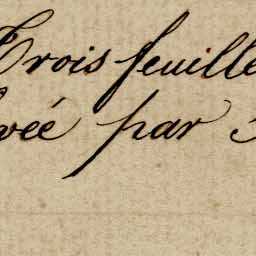 Trois feuille
vée par